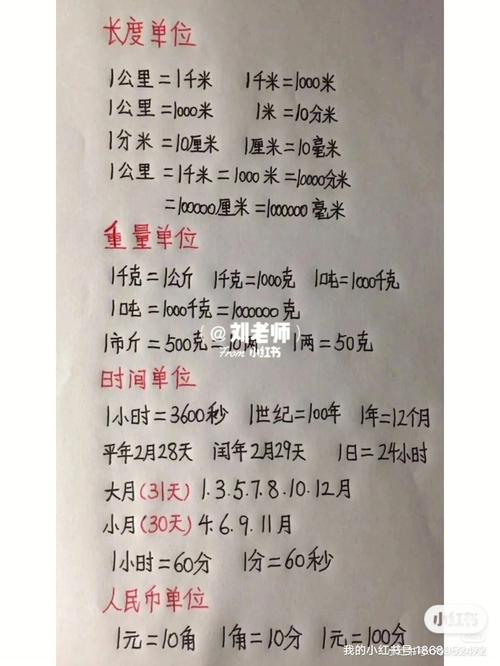 长度单位
1公里=1千米 1千米=1000米
1公里=1000米 1米=10分米
1分米=10厘米 1厘米=10毫米
1公里=1千米=1000米=10000分米
=100000厘米=1000000毫米
重量单位
1千克=1公斤 1千克=1000克 1吨=1000千克
1吨=1000千克=1000000克
@刘老师
1市斤=500克=10两 1两=50克
From 小红书
时间单位
1小时=3600秒 1世纪=100年 1年=12个月
平年2月28天 闰年2月29天 1日=24小时
大月(31天) 1.3.5.7.8.10.12月
小月(30天) 4.6.9.11月
1小时=60分 1分=60秒
人民币单位
小红书
1元=10角 1角=10分 1元=100分
我的小红书号: